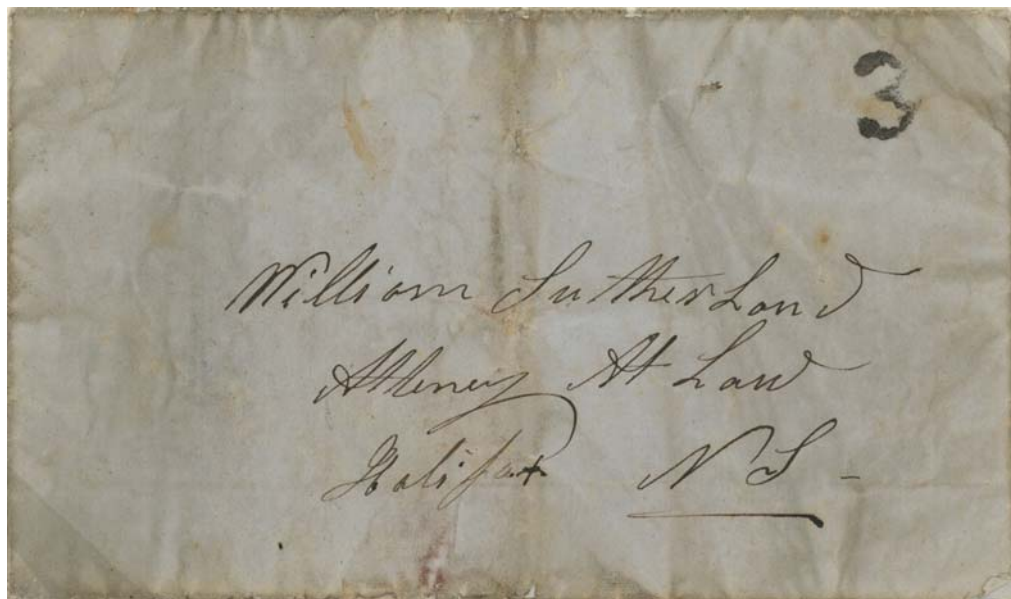 3
William Sutherland
Atteney At Law
Halifax N S -